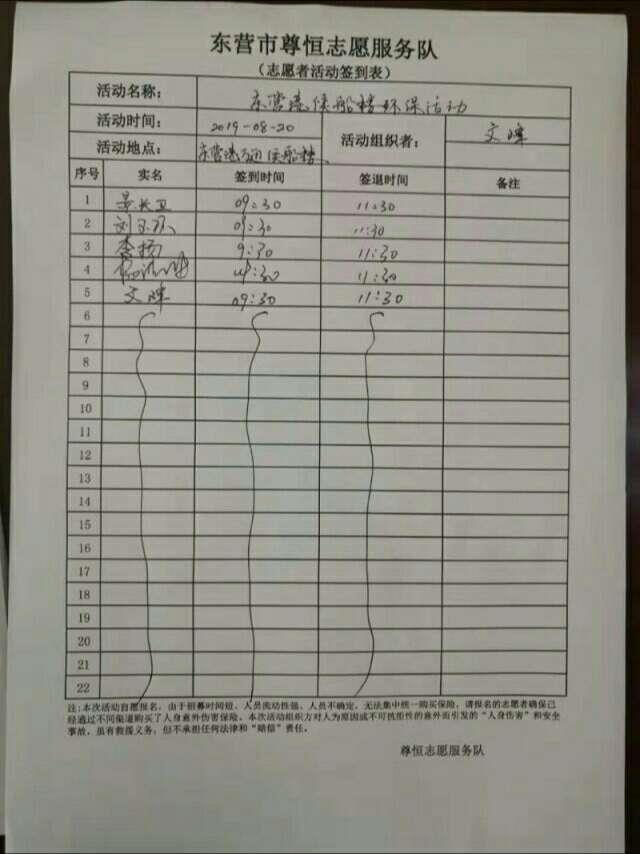 东营市尊恒志愿服务队
（志愿者活动签到表）
活动名称： 东营港候船楼环保活动
活动时间： 2019-08-20 活动组织者： 文
活动地点： 东营港 候船楼
序号 实名 签到时间 签退时间 备注
1 09:30 11:30
2 刘玉 09:30 11:30
3 李扬 9:30 11:30
4 :30 11:30
5 文 09:30 11:30
6
7
8
9
10
11
12
13
14
15
16
17
18
19
20
21
22
注:本次活动自愿报名，由于招募时间短、人员流动性强、人员不确定，无法集中统一购买保险，请报名的志愿者确保已
经通过不同渠道购买了人身意外伤害保险。本次活动组织方对人为原因或不可抗拒性的意外而引发的“人身伤害”和安全
事故，虽有救援义务，但不承担任何法律和“赔偿”责任。
尊恒志愿服务队